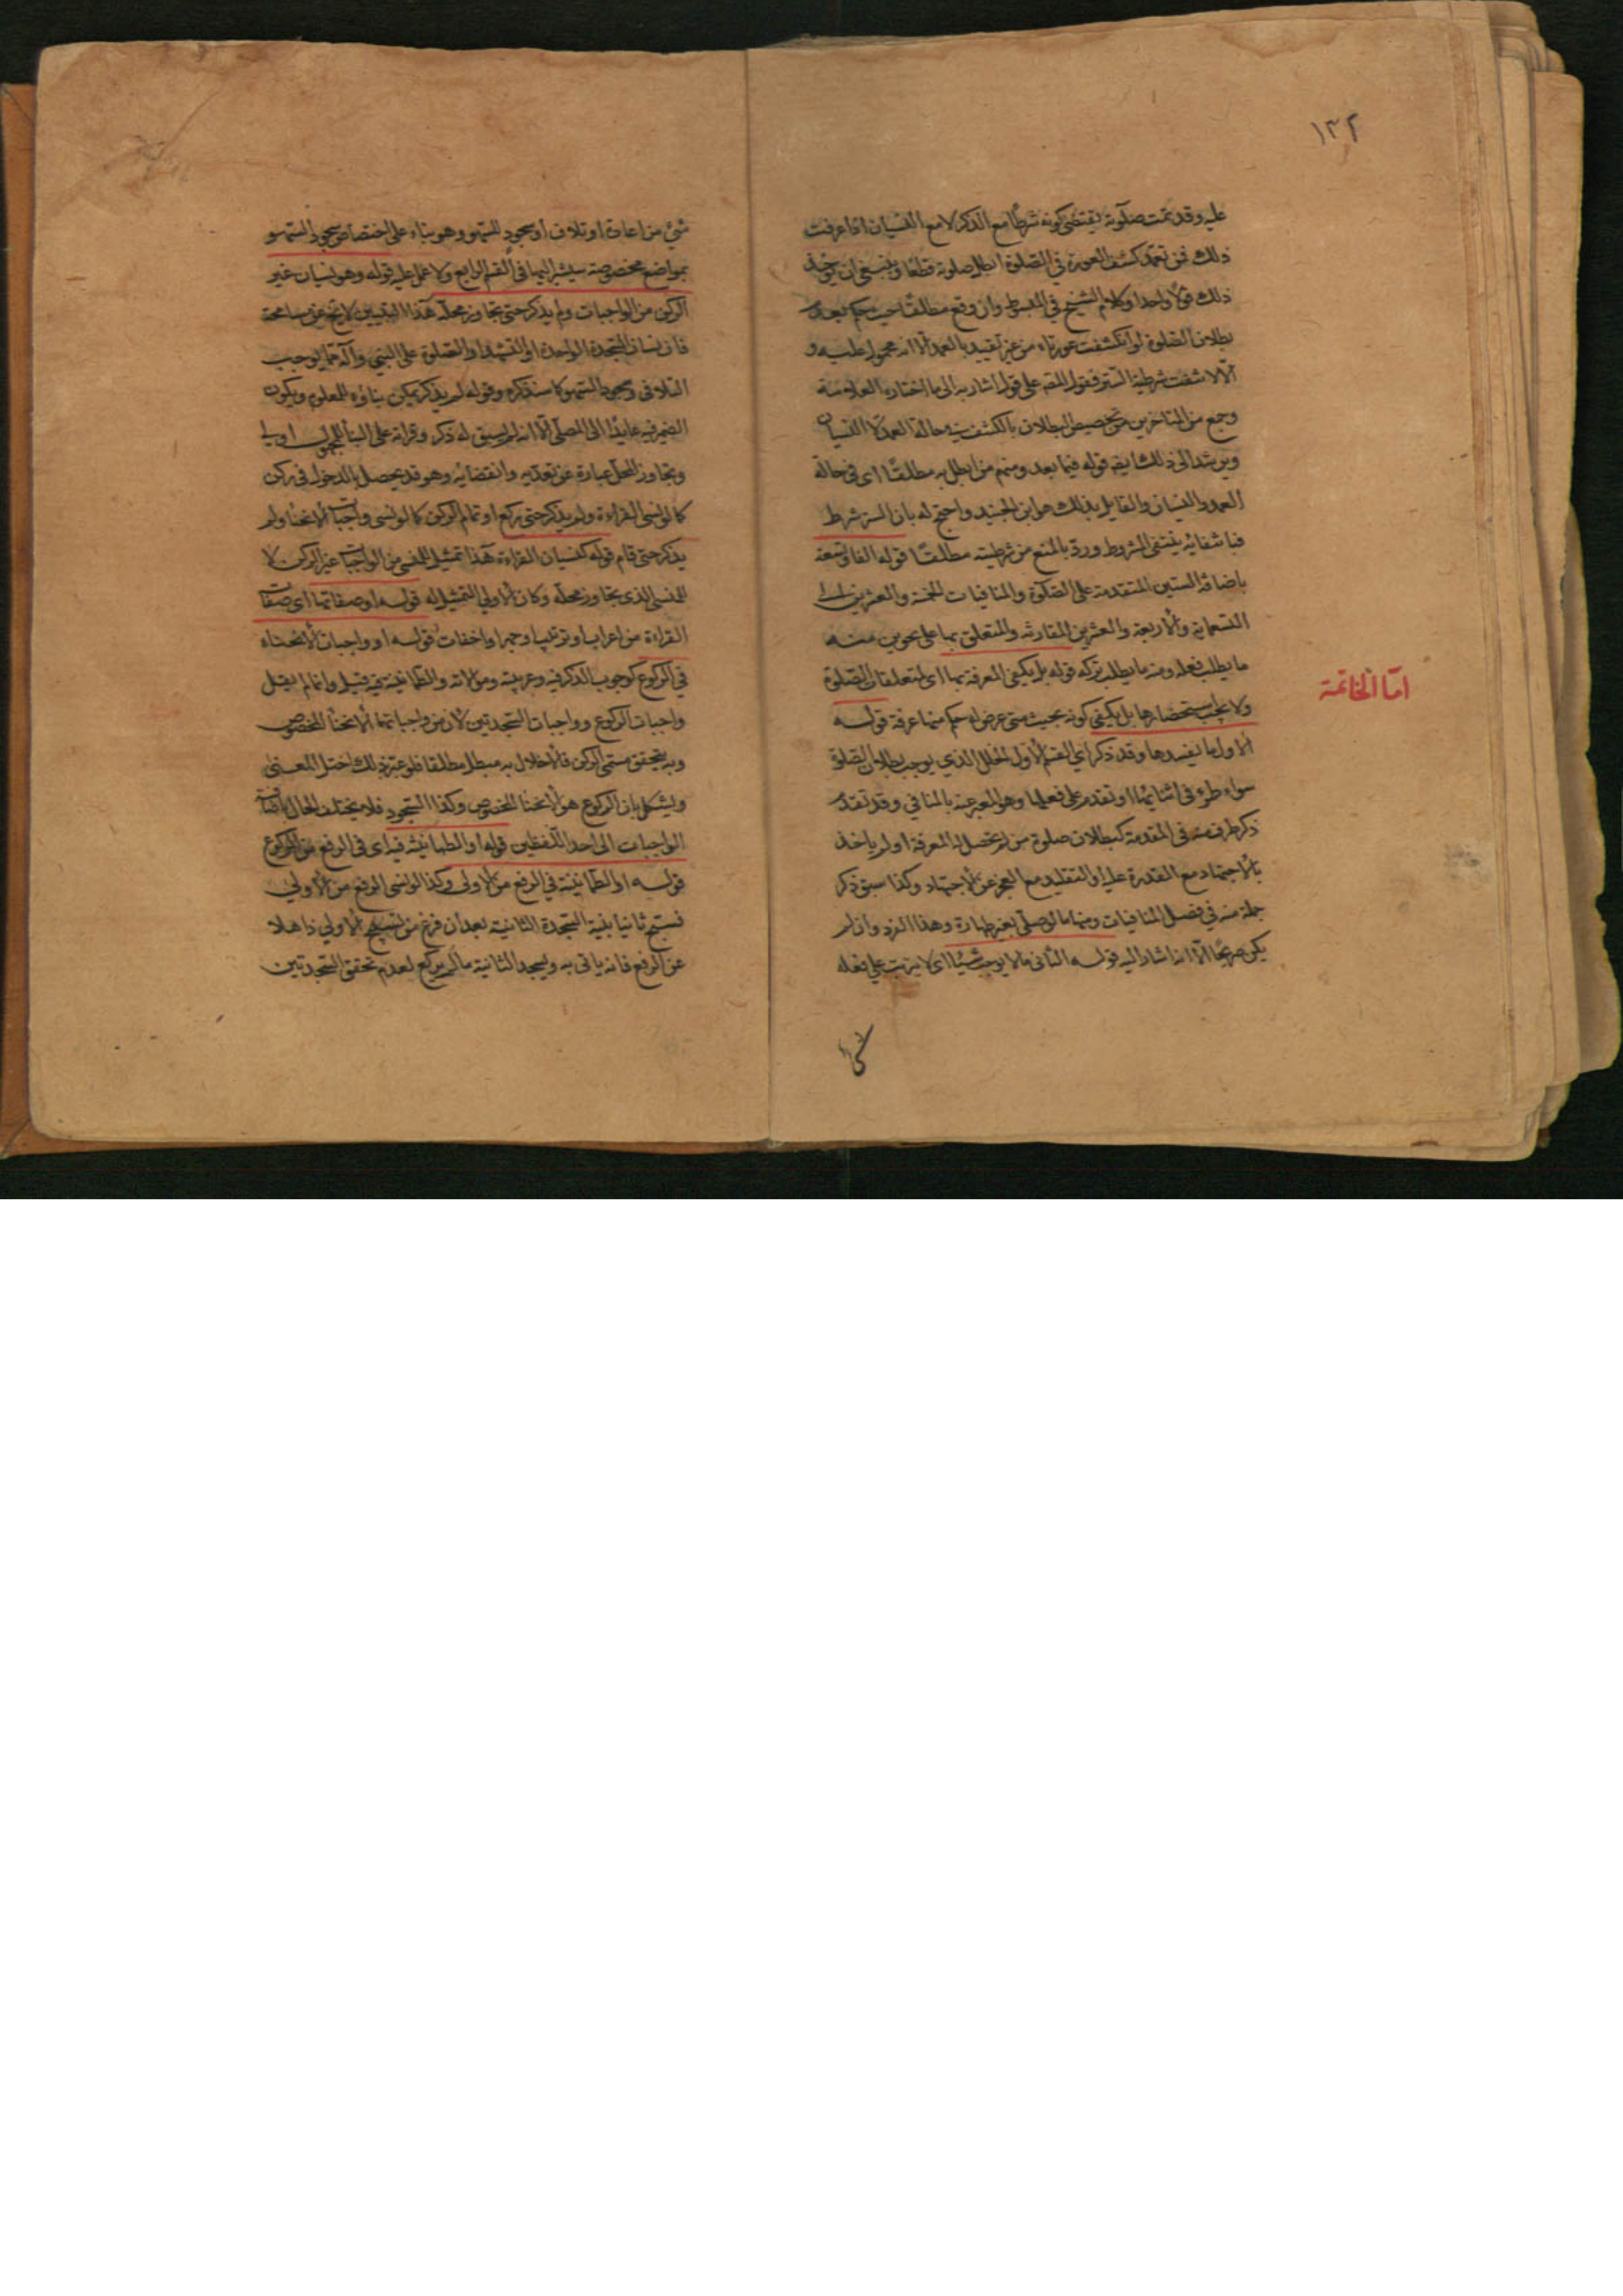 ١٣٢
عليه وقد تمت صلوته يقتضى كونه شرطا مع الذكر لا مع النسيان اذا عرفت
ذلك فمن تعمد كشف العورة في الصلوة ابطل صلوته قطعا وينبغي ان يؤخذ
ذلك قولا واحدا وكلام الشيخ في المبسوط وان وقع مطلقا حيث حكم بعدم
بطلان الصلوة لو انكشفت عورتاه من غير تقييد بالعمد الا انه محمول عليه و
الا لانتفت شرطية الستر فقول المص على قول اشار به الى ما اختاره العلامة
وجمع من المتاخرين من تخصيص البطلان بالكشف بحالة العمد لا النسيان
ويرشد الى ذلك ايضا قوله فيما بعد ومنهم من ابطل به مطلقا اى فى حالة
العمد والنسيان والقايل بذلك هو ابن الجنيد واحتج له بان الستر شرط
فبانتفائه ينتفى المشروط ورد بالمنع من شرطيته مطلقا قوله الفا وتسعة
باضافة الستين المتقدمة على الصلوة والمنافيات الخمسة والعشرين الى
التسعماية والاربعة والعشرين المقارنة والمتعلق بها على نحوين منه
ما يطلب فعله ومنه ما يطلب تركه قوله بل يكفى المعرفة بها اى لمتعلقات الصلوة
ولا يجب استحضارها بل يكفى كونه بحيث متى عرض له حكم منها عرفه قوله
الاول ما يفسدها وقد ذكر اي القسم الاول الخلل الذي يوجب بطلان الصلوة
سواء طرء فى اثنائها او تقدم على فعلها وهو المعبر عنه بالمنافي وقد تقدم
ذكر طرف منه فى المقدمة كبطلان صلوة من لم تحصل له المعرفة او لم ياخذ
بالاجتهاد مع القدرة عليه او التقليد مع العجز عن الاجتهاد وكذا سبق ذكر
جملة منه في فصل المنافيات ومنها ما لو صلى بغير طهارة وهذا الفرد وان لم
يكن صريحا الا انه اشار اليه قوله الثانى ما لا يوجب شيئا اى لا يترتب على فعله
اما الخاتمة
شئ من اعادة او تلاف او سجود للسهو وهو بناء على اختصاص سجود السهو
بمواضع مخصوصة سيشير اليها فى القسم الرابع ولا عمل عليه قوله وهو نسيان غير
الركن من الواجبات ولم يذكر حتى تجاوز محله هذا التبيين لا يخ عن مسامحة
فان نسيان السجدة الواحدة او التشهد او الصلوة على النبي وآله مما يوجب
التلافى وسجود السهو كما سنذكره وقوله لم يذكر يمكن بناؤه للمعلوم ويكون
الضمير فيه عايدا الى المصلى الا انه لم يسبق له ذكر وقراته على البناء للمجهول اولى
وتجاوز المحل عبارة عن تعديه وانقضائه وهو قد يحصل بالدخول فى ركن
كما لو نسى القراءة ولم يذكر حتى ركع او تمام الركن كما لو نسى واجبات الانحناء ولم
يذكر حتى قام قوله كنسيان القراءة هذا تمثيل للمنسي من الواجبات غير الركن لا
للمنسى الذى تجاوز محله وكان الاولى التمثيل له قوله او صفاتها اى صفات
القراءة من اعراب او ترتيب او جهر او اخفات قوله او واجبات الانحناء
في الركوع كوجوب الذكر فيه وعربيته وموالاته والطمانينة فيه قيل وانما لم يقل
واجبات الركوع وواجبات السجدتين لان من واجباتهما الانحناء المخصوص
وبه يتحقق مسمى الركن فالاخلال به مبطل مطلقا فلو عبر بذلك اختل المعنى
ويشكل بان الركوع هو الانحناء المخصوص وكذا السجود فلا يختلف الحال باضافة
الواجبات الى احد اللفظين قوله او الطمانينة فيه اى فى الرفع من الركوع
قوله او الطمانينة في الرفع من الاولى وكذا لو نسى الرفع من الاولى
فسبح ثانيا بنية السجدة الثانية بعد ان فرغ من تسبيح الاولى ذاهلا
عن الرفع فانه ياتى به ويسجد الثانية ما لم يركع لعدم تحقق السجدتين